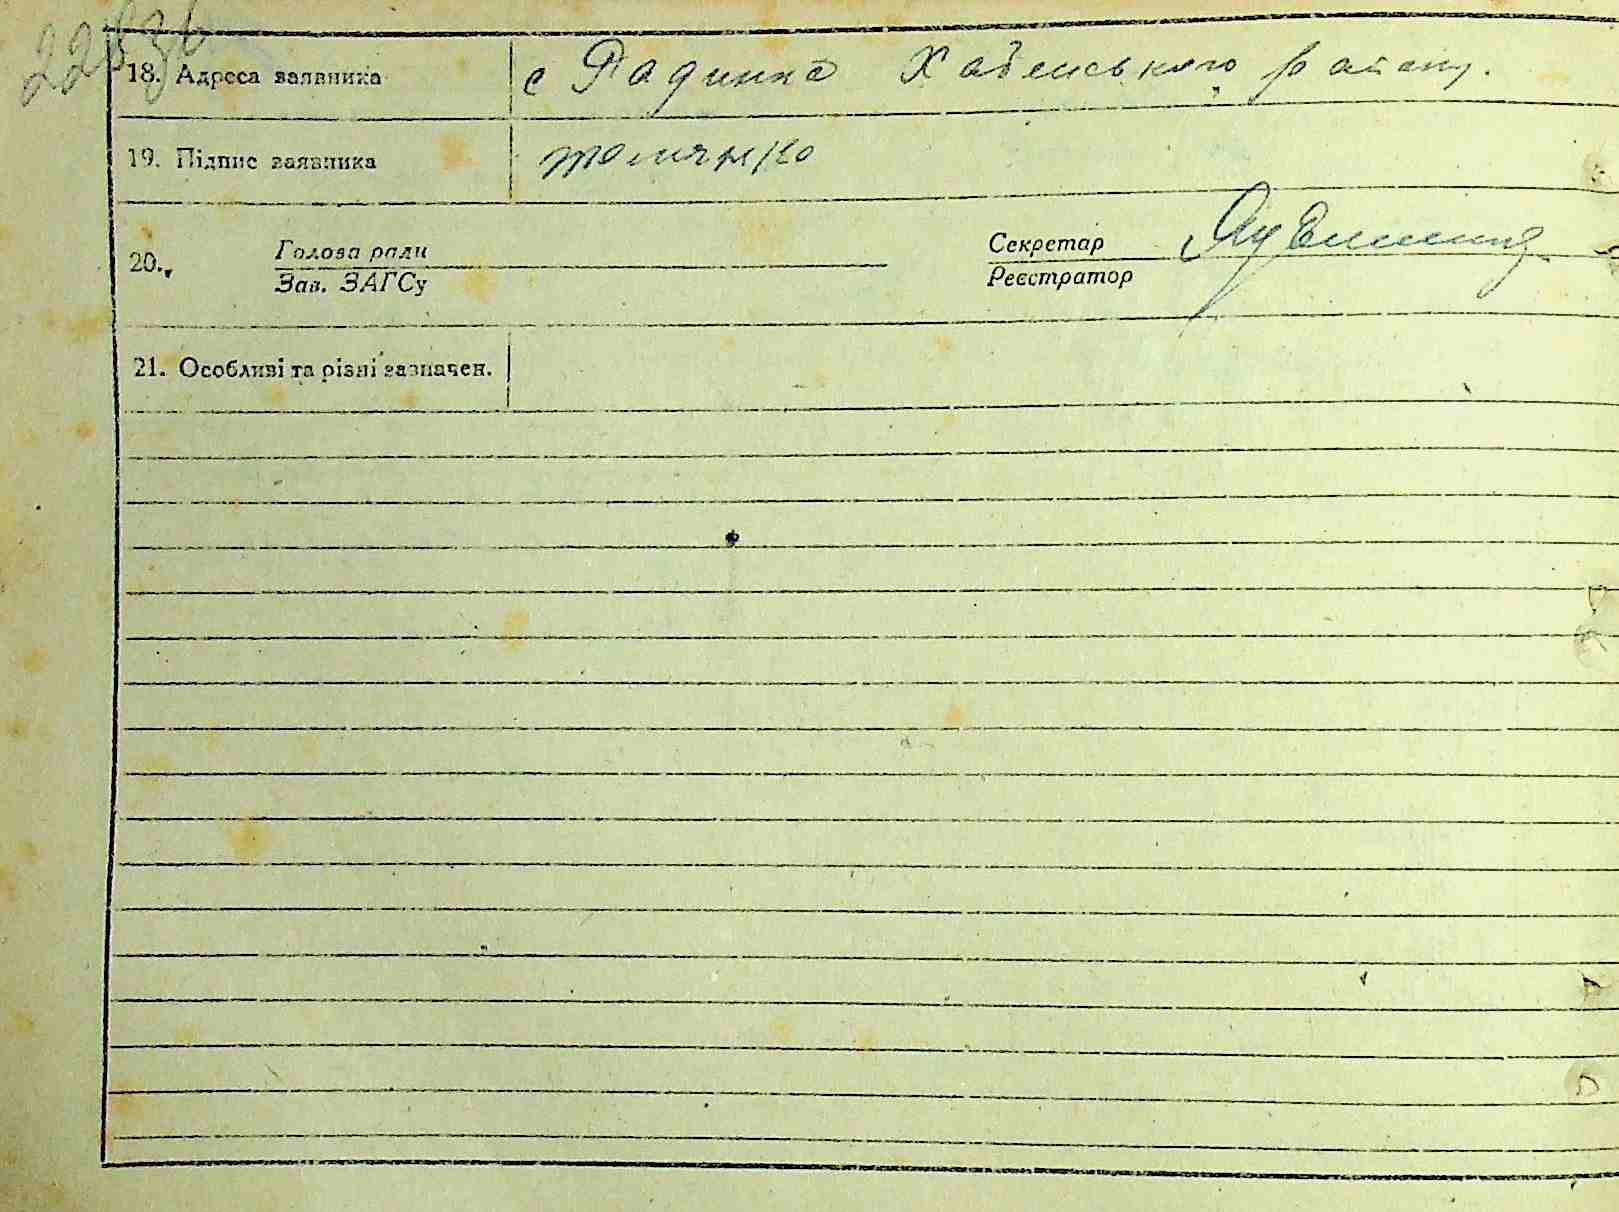 18. Адреса заявника с Радинка Хабенського району.
19. Підпис заявника
20. Голова ради Секретар
Зав. ЗАГСу Реєстратор
21. Особливі та різні зазначен.